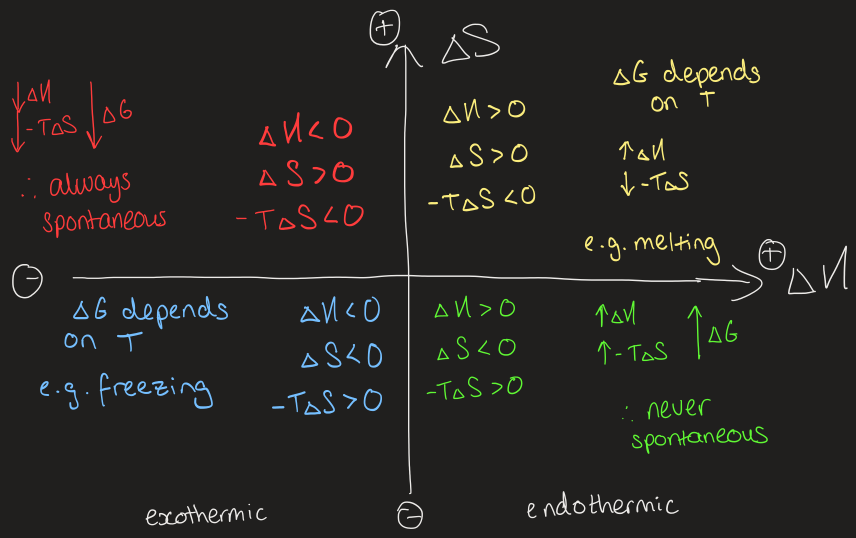 ⊕ ΔS
↓ΔH
↓-TΔS ↓ΔG
∴ always
spontaneous
ΔH<0
ΔS>0
-TΔS<0
ΔH>0
ΔS>0
-TΔS<0
ΔG depends
on T
↑ΔH
↓-TΔS
e.g. melting
⊖
⊕ ΔH
ΔG depends
on T
e.g. freezing
ΔH<0
ΔS<0
-TΔS>0
ΔH>0
ΔS<0
-TΔS>0
↑ΔH
↑-TΔS ↑ΔG
∴ never
spontaneous
exothermic
⊖
endothermic